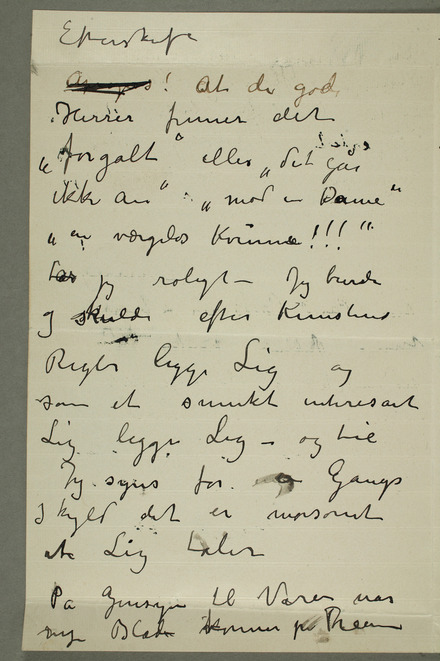 Efterskrift
! At de gode
Herrer finner det
„for galt“ eller „det går
ikke an“ „mod en Dame“
„en værgeløs Kvinne!!!“
tar jeg roligt – Jeg burde
og skulde efter Kunstens
Regler ligge Lig og
som et smukt interesant
Lig ligge Lig – og tie
Jeg synes for en Gangs
Skyld det er morsomt
at Lig taler
På Gensyn til Våren når
nye Blade kommer på Træerne